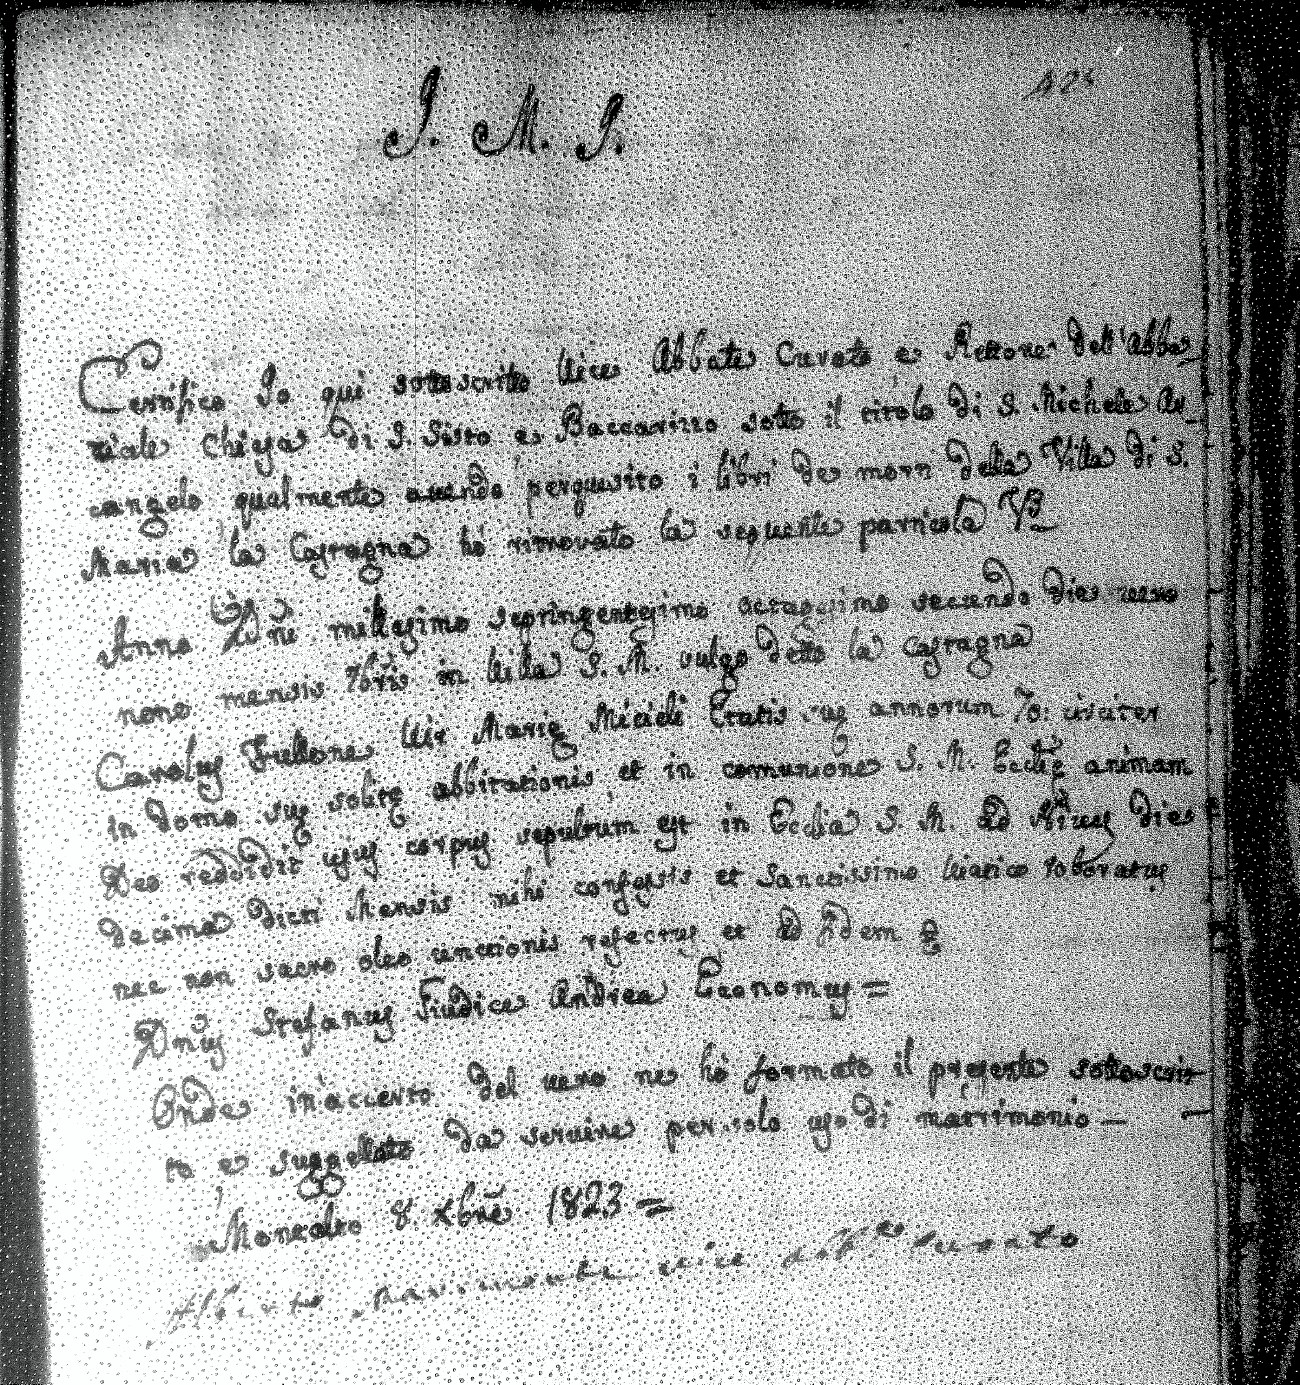 J. M. J.
Certifico Io qui sottoscritto Vice Abbate Curato e Rettore dell'Abba
ziale Chiesa di S. Sisto e Baccarizzo sotto il titolo di S. Michele Ar
cangelo qualmente auendo perquisito i libri de morti della Villa di S.
Maria la Castagna hò ritrovato la seguente particola VB
Anno Dñe millesimo septingentesimo octagesimo secundo die vero
nono mensis 7bris in Villa S. M. vulgo detto la Castagna
Carolus Fullone Vir Marie Miceli Etatis sue annorum 70: citciter
in domo sue solite abbitationis, et in comunione S. M. Ecctie animam
Deo reddidit cujus corpus sepultum est in Ecclia S. M. ad Nives die
decima dicti Mensis mihi confessis et Sanctissimo Viatico roboratus
nec non sacro oleo unctionis refectus et
Dñus Stefanus Giudice Andrea Economus =
Onde in accerto del vero ne hò formato il presente sottoscrit
to e suggellato da servire per solo uso di matrimonio —
Montalto 8. Xbre 1823 =
Alberto vice Abbte Curato